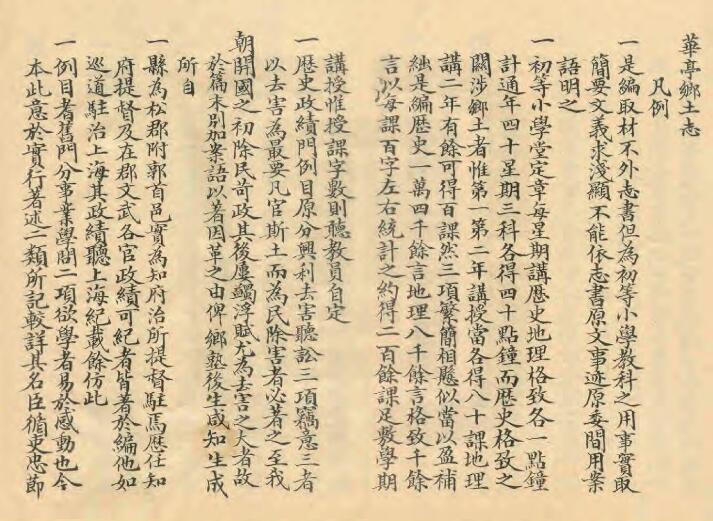 華亭鄉土志
凡例
一是編取材不外志書但為初等小學教科之用事實取
簡要文義求淺顯不能依志書原文事迹原委間用案
語明之
一初等小學堂定章每星期講歷史地理格致各一點鐘
計通年四十星期三科各得四十點鐘而歷史格致之
關涉鄉土者惟第一第二年講授當各得八十課地理
講二年有餘可得百課然三項繁簡相懸似當以盈補
絀是編歷史一萬四千餘言地理八千餘言格致千餘
言以每課百字左右統計之約得二百餘課足數學期
講授惟授課字數則聽教員自定
一歷史政績門例目原分興利去害聽訟三項竊意三者
以去害為最要凡官斯土而為民除害者必著之至我
朝開國之初除民苛政其後屢蠲浮賦尤為去害之大者故
於篇末別加案語以著因革之由俾鄉塾後生咸知生成
所自
一縣為松郡附郭首邑實為知府治所提督駐焉歷任知
府提督及在郡文武各官政績可紀者皆著於編他如
巡道駐治上海其政績聽上海紀載餘仿此
一例目耆舊門分事業學問二項欲學者易於感動也今
本此意於實行著述二類所記較詳其名臣循吏忠節